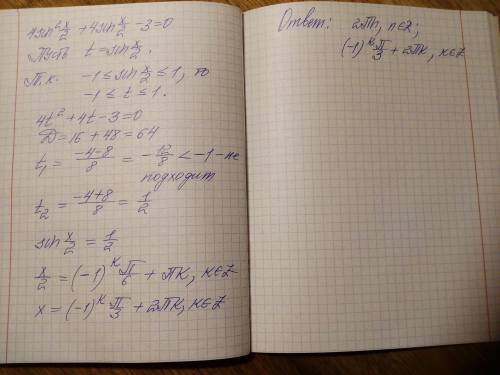 4sin²x/2 + 4sin x/2 - 3 = 0
Пусть t = sin x/2.
Т.к. -1 ≤ sin x/2 ≤ 1, то
-1 ≤ t ≤ 1.
4t² + 4t - 3 = 0
D = 16 + 48 = 64
t₁ = (-4-8)/8 = -12/8 < -1 - не
подходит
t₂ = (-4+8)/8 = 1/2
sin x/2 = 1/2
x/2 = (-1)^k π/6 + πk, k∈Z
x = (-1)^k π/3 + 2πk, k∈Z
Ответ: 2πn, n∈Z;
(-1)^k π/3 + 2πk, k∈Z